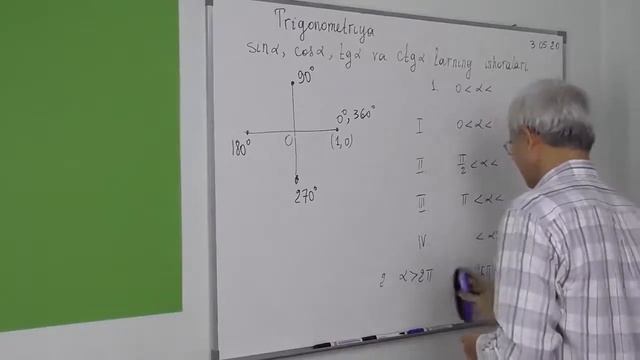 Trigonometriya
3.05.20
sinα, cosα, tgα va ctgα larning ishoralari
90°
1. 0 < α <
0°, 360°
I 0 < α <
180°
O
(1,0)
II π/2 < α <
270°
III π < α <
IV < α
2 α > 2π